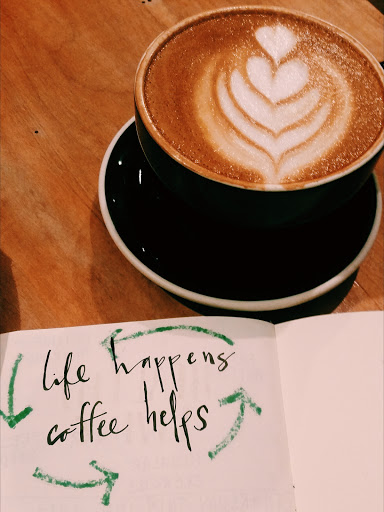 life happens
coffee helps